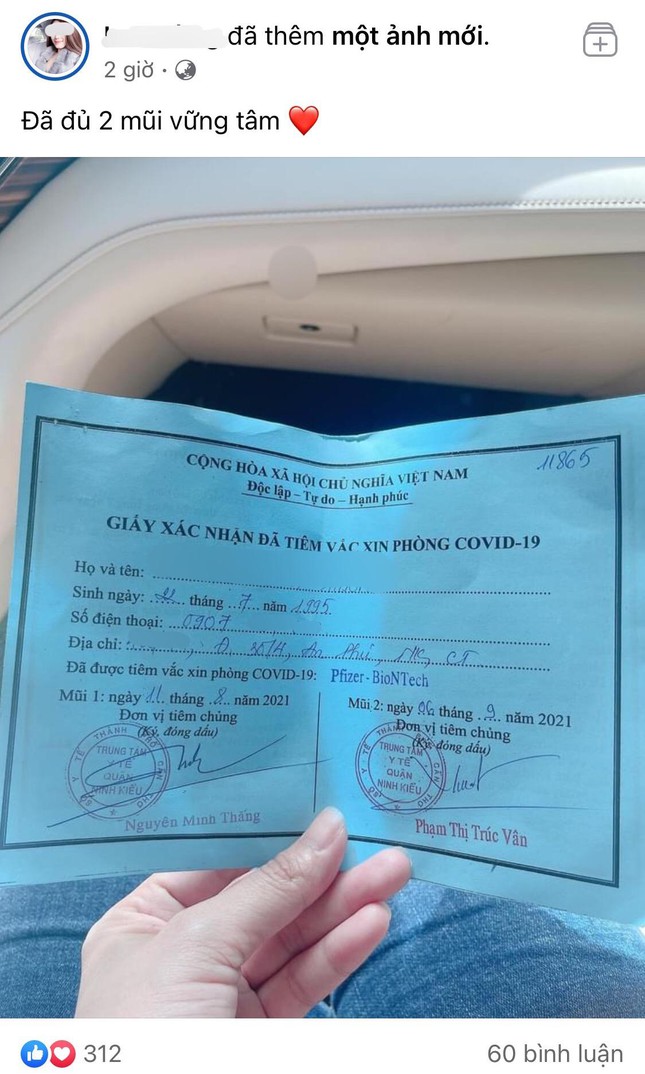 đã thêm một ảnh mới.
2 giờ ·
Đã đủ 2 mũi vững tâm ❤️
11865
CỘNG HÒA XÃ HỘI CHỦ NGHĨA VIỆT NAM
Độc lập – Tự do – Hạnh phúc
GIẤY XÁC NHẬN ĐÃ TIÊM VẮC XIN PHÒNG COVID-19
Họ và tên:
Sinh ngày: tháng 7 năm 1995
Số điện thoại: 0907
Địa chỉ: An Phú, CT
Đã được tiêm vắc xin phòng COVID-19: Pfizer-BioNTech
Mũi 1: ngày 11 tháng 8 năm 2021
Đơn vị tiêm chủng
(Ký, đóng dấu)
SỞ Y TẾ THÀNH PHỐ CẦN THƠ
TRUNG TÂM
Y TẾ
QUẬN
NINH KIỀU
Nguyễn Minh Thắng
Mũi 2: ngày 06 tháng 9 năm 2021
Đơn vị tiêm chủng
(Ký, đóng dấu)
SỞ Y TẾ THÀNH PHỐ CẦN THƠ
TRUNG TÂM
Y TẾ
QUẬN
NINH KIỀU
Phạm Thị Trúc Vân
312
60 bình luận